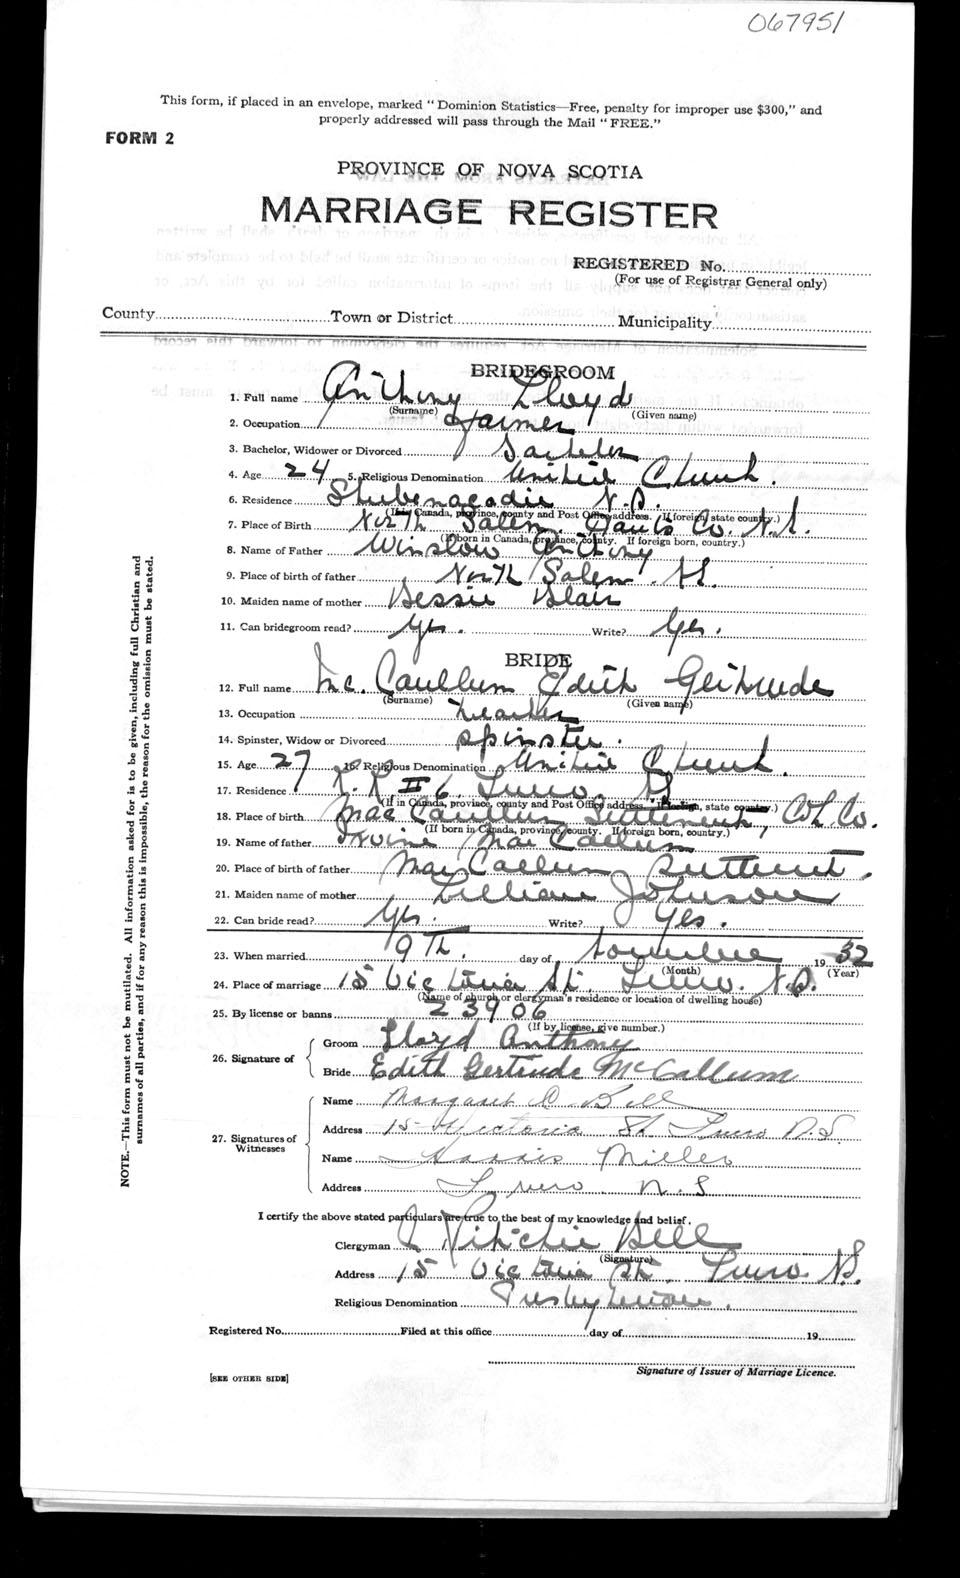 067951
This form, if placed in an envelope, marked "Dominion Statistics—Free, penalty for improper use $300," and
properly addressed will pass through the Mail "FREE."
FORM 2
PROVINCE OF NOVA SCOTIA
MARRIAGE REGISTER
REGISTERED No.
(For use of Registrar General only)
County Town or District Municipality
BRIDEGROOM
1. Full name Anthony Lloyd
(Surname) (Given name)
2. Occupation Farmer
3. Bachelor, Widower or Divorced Bachelor
4. Age 24 5. Religious Denomination United Church.
6. Residence Shubenacadie N.S.
(If in Canada, province, county and Post Office address. If foreign, state country.)
7. Place of Birth North Salem. Hants Co. N.S.
(If born in Canada, province, county. If foreign born, country.)
8. Name of Father Winslow Anthony
9. Place of birth of father North Salem
10. Maiden name of mother Bessie Blair
11. Can bridegroom read? Yes. Write? Yes.
BRIDE
12. Full name Mc. Caullum Edith Gertrude
(Surname) (Given name)
13. Occupation teacher
14. Spinster, Widow or Divorced spinster.
15. Age 27 16. Religious Denomination United Church.
17. Residence R. R # 6. Truro
(If in Canada, province, county and Post Office address. If foreign, state country.)
18. Place of birth Mac Caullum Settlement, Col. Co.
(If born in Canada, province, county. If foreign born, country.)
19. Name of father Irvine MacCallum
20. Place of birth of father MacCallum Settlement.
21. Maiden name of mother Lillian Johnson
22. Can bride read? Yes. Write? Yes.
23. When married 9th. day of November 1932
(Month) (Year)
24. Place of marriage 15 Victoria St. Truro. N.S.
(Name of church or clergyman's residence or location of dwelling house)
25. By license or banns 23906
(If by license, give number.)
26. Signature of
Groom Lloyd Anthony
Bride Edith Gertrude McCallum
27. Signatures of Witnesses
Name Margaret C. Bell
Address 15 Victoria St. Truro N.S
Name Harris Miller
Address Truro N.S
I certify the above stated particulars are true to the best of my knowledge and belief.
Clergyman Ritchie Bell
(Signature)
Address 15 Victoria St. Truro. N.S.
Religious Denomination Presbyterian.
Registered No. Filed at this office day of 19
Signature of Issuer of Marriage Licence.
[SEE OTHER SIDE]
NOTE.—This form must not be mutilated. All information asked for is to be given, including full Christian and
surnames of all parties, and if for any reason this is impossible, the reason for the omission must be stated.